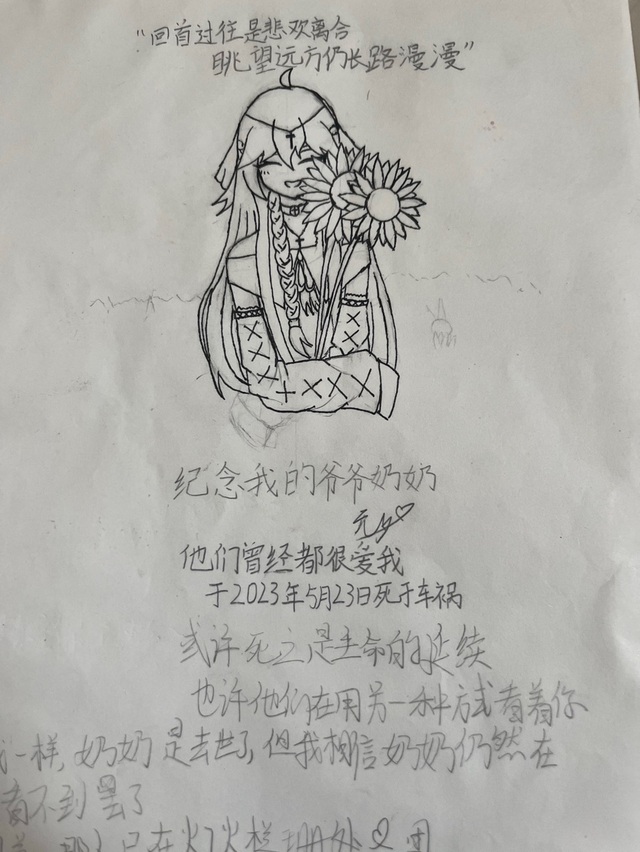 “回首过往是悲欢离合
眺望远方仍长路漫漫”
纪念我的爷爷奶奶
他们曾经都很爱我
于2023年5月23日死于车祸
或许死亡是生命的延续
也许他们在用另一种方式看着你
一样,奶奶是去世了,但我相信奶奶仍然在
看不到罢了